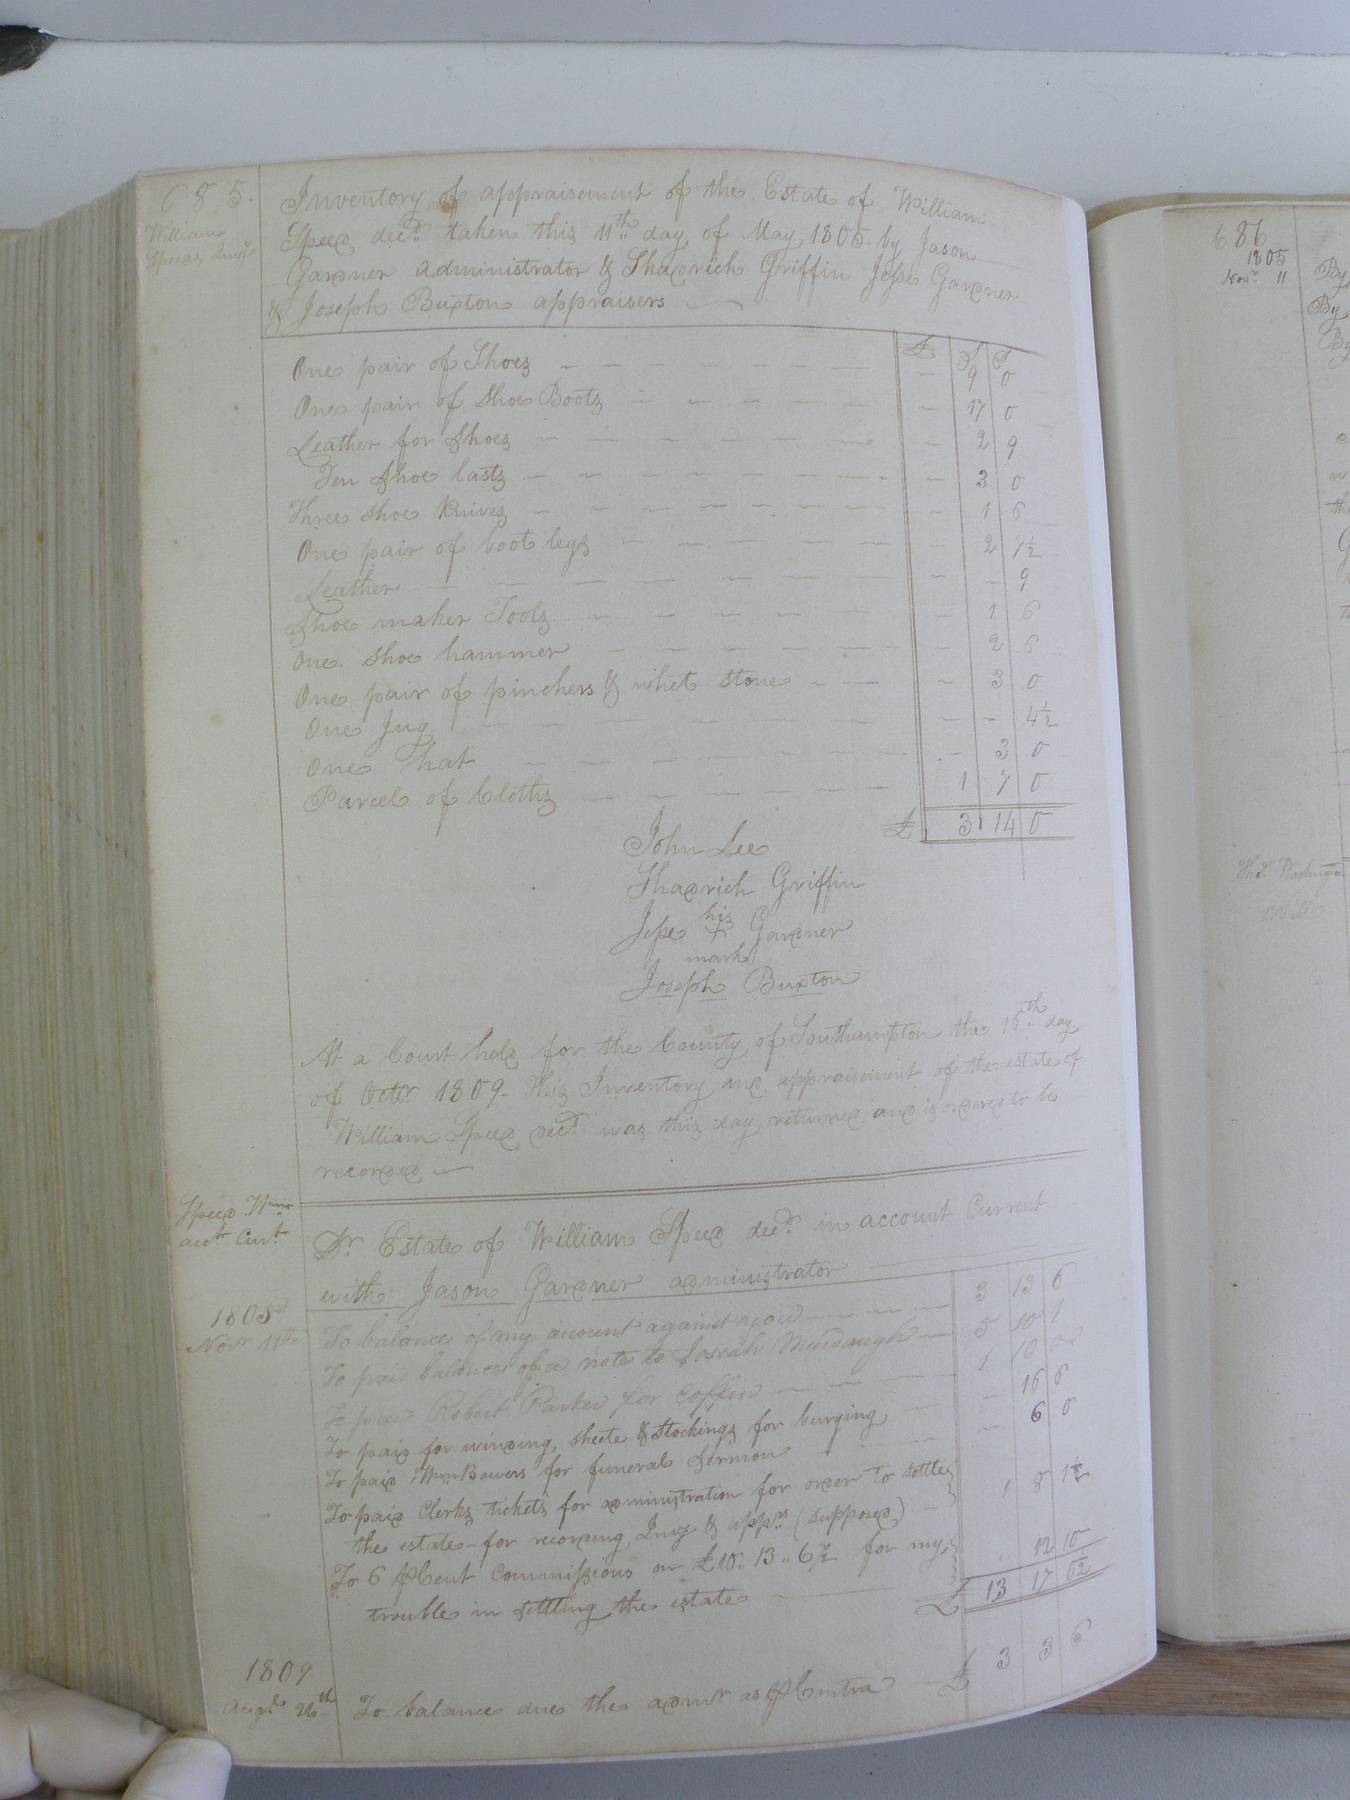 685.
William
Speeds Invy
Inventory of appraisement of the Estate of William
Speed decd. taken this 11th day of May 1805 by Jason
Gardner administrator & Shadrich Griffin Jesse Gardner
& Joseph Buxton appraisers
£ S d
One pair of Shoes - 9 0
One pair of Shoe Boots - 17 0
Leather for Shoes - 2 9
Ten Shoe lasts - 3 0
Three shoe Knives - 1 6
One pair of boot legs - 2 7½
Leather - - 9
Shoe maker Tools - 1 6
One shoe hammer - 2 6
One pair of pinchers & whet stone - 3 0
One Jug - - 4½
One Hat - 3 0
Parcel of Cloths 1 7 0
£ 3 14 0
John Lee
Shadrich Griffin
his
Jesse + Gardner
mark
Joseph Buxton
At a Court held for the County of Southampton the th day
of Octr. 1809. This Inventory and appraisement of the estate of
William Speed decd. was this day returned and is ordered to be
recorded
Speed Wm.
acct. Curt.
Dr. Estate of William Speed decd. in account Current
with Jason Gardner administrator
1805
Novr. 11th
To balance of my account against 3 13 6
To paid balance of a note to Josiah 5 10 1
To paid Robert Parker for Coffin 1 10 0
To paid for winding sheete & Stockings for burying - 16 6
To paid Wm. Bowers for funeral Sermon - 6 0
To paid Clerks tickets for administration for order to settle
the estate - for recording Invy & appt. (supposed) 1 8 1½
To 6 ⅌ Cent Commissions on £10..13..6½ for my
trouble in settling the estate 12 10
£ 13 17 0½
1809
Augt. 26th
To balance due the admr. as ⅌ Contra £ 3 3 6
686
1805
Novr. 11
By
By
By
Will